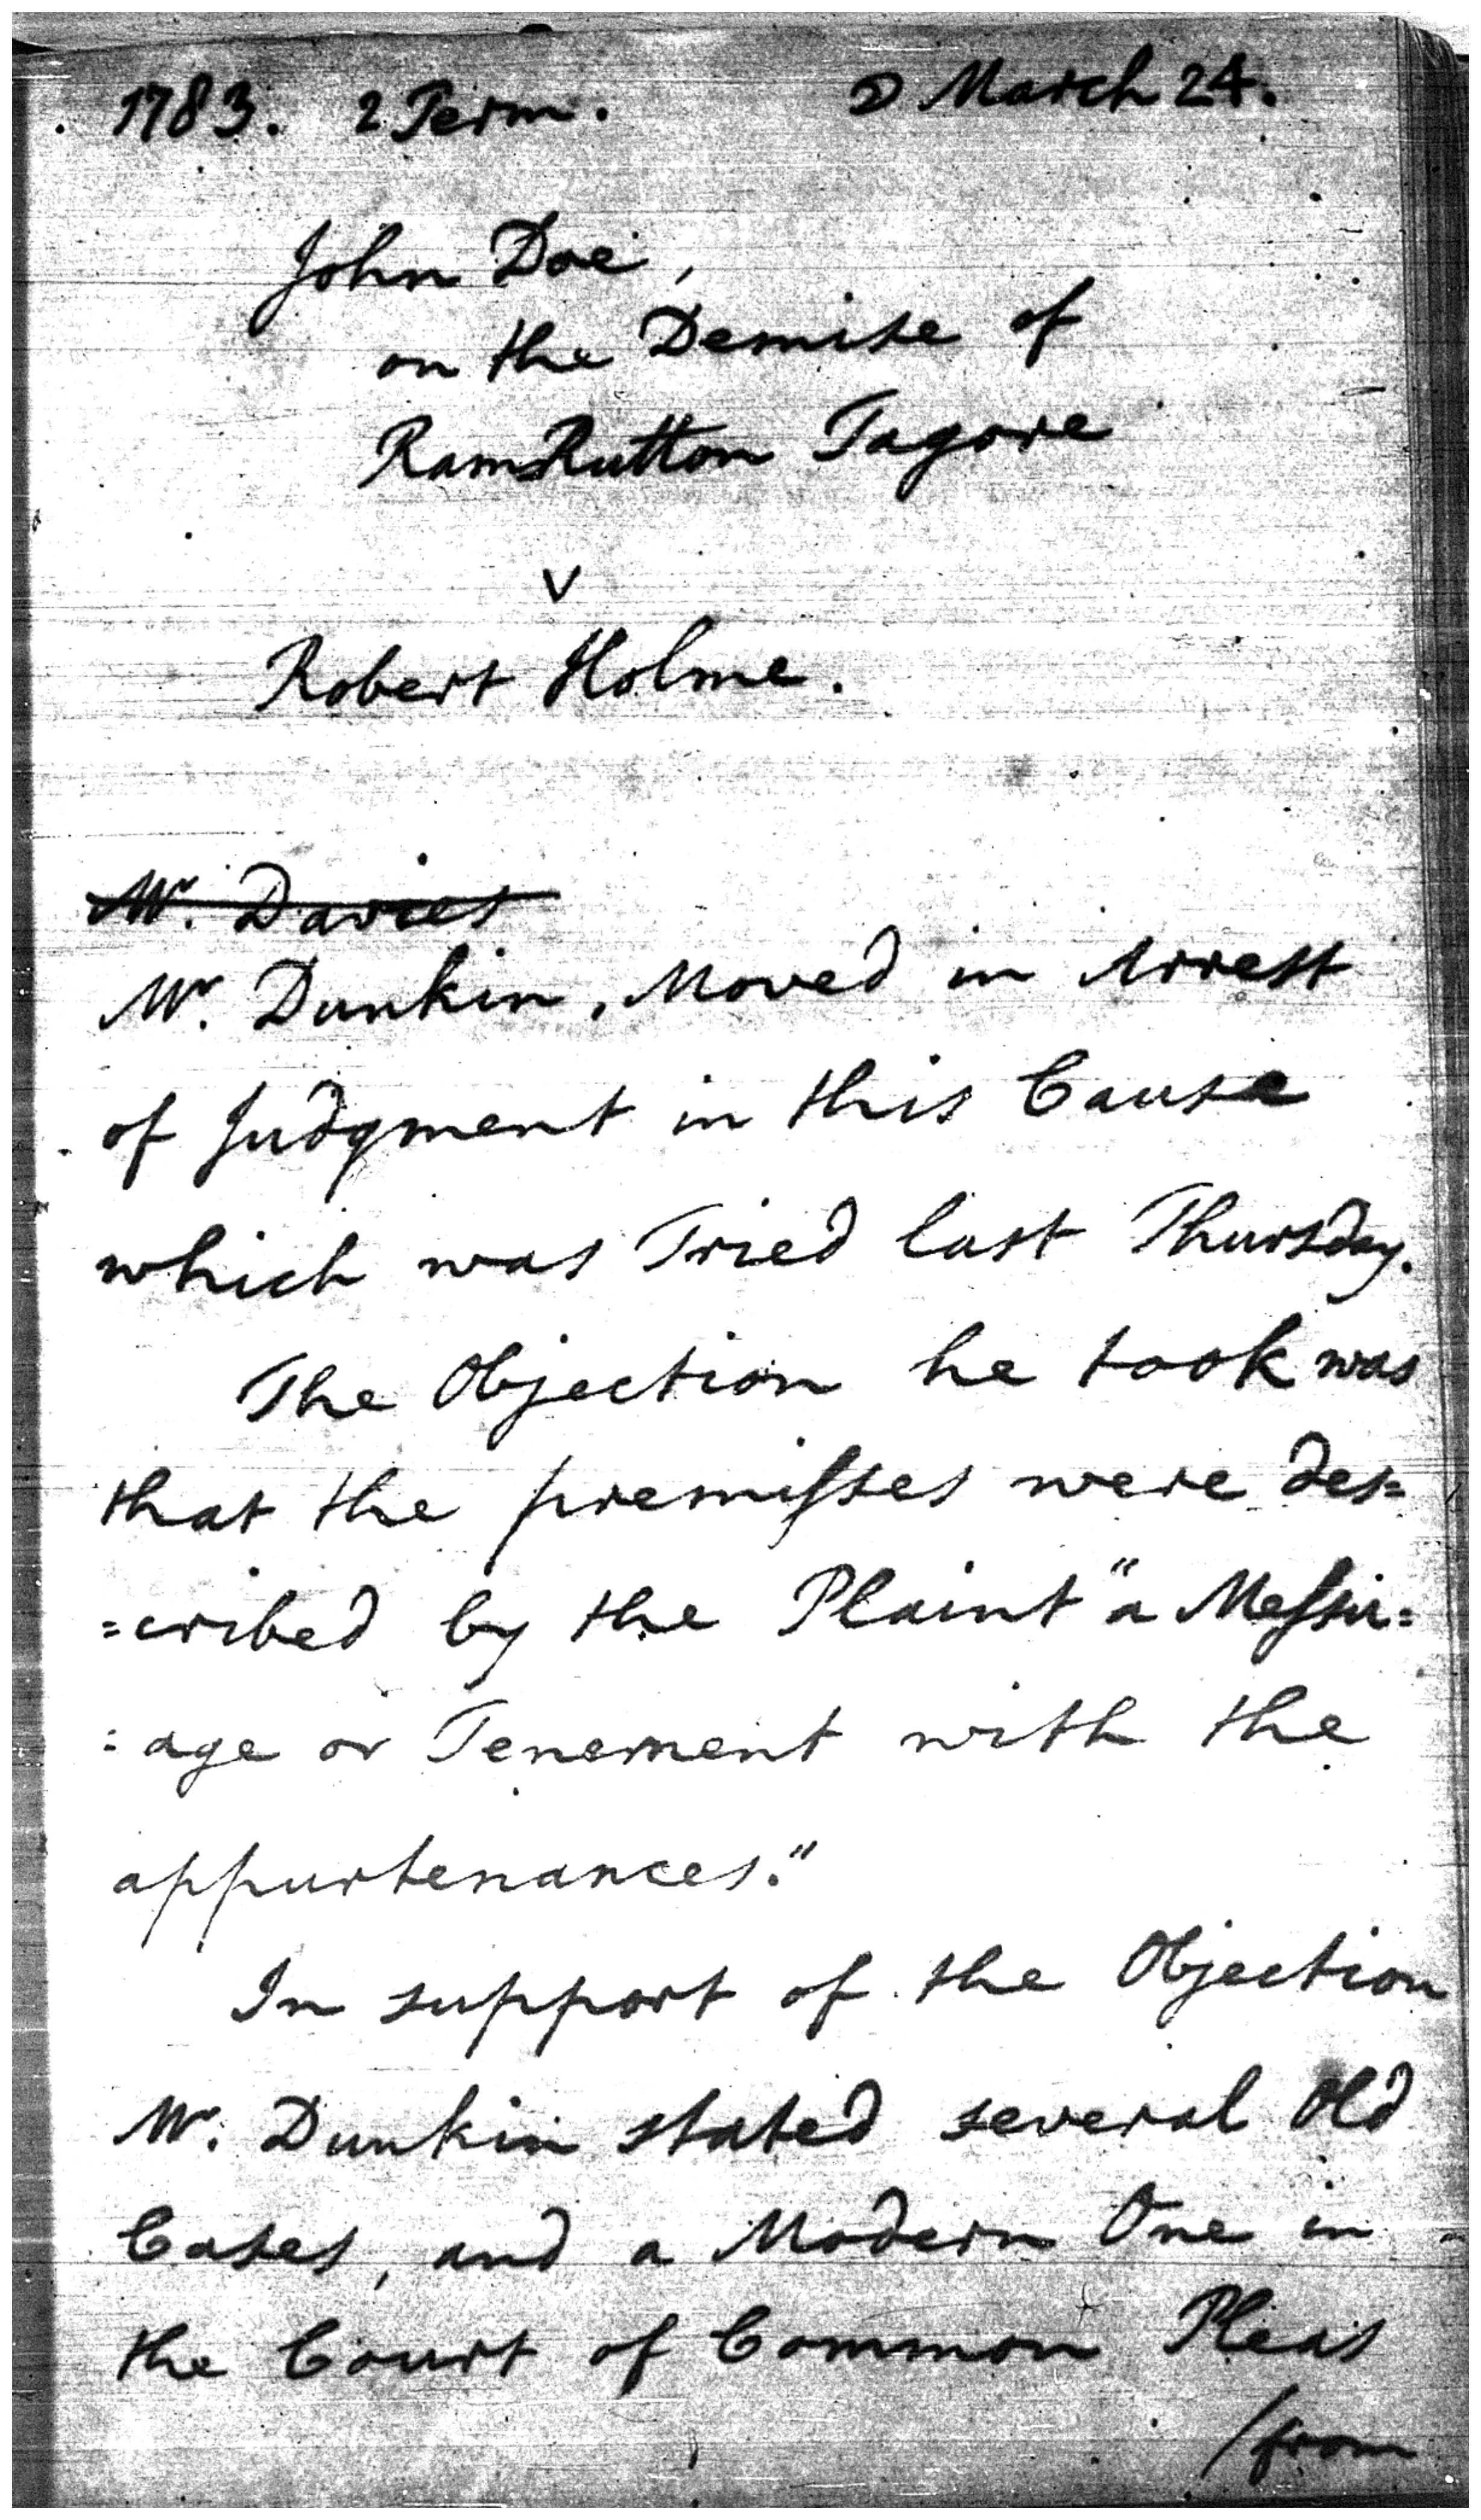 1783. 2 Term. ☽ March 24.
John Doe,
on the Demise of
RamRutton Tagore
v
Robert Holme.
Mr. Davies
Mr. Dunkin, Moved in Arrest
of Judgment in this Cause
which was Tried last Thursday.
The Objection he took was
that the premiſses were des=
=cribed by the Plaint "a Meſsu=
=age or Tenement with the
appurtenances."
In support of the Objection
Mr. Dunkin stated several Old
Cases, and a Modern One in
the Court of Common Pleas
/from